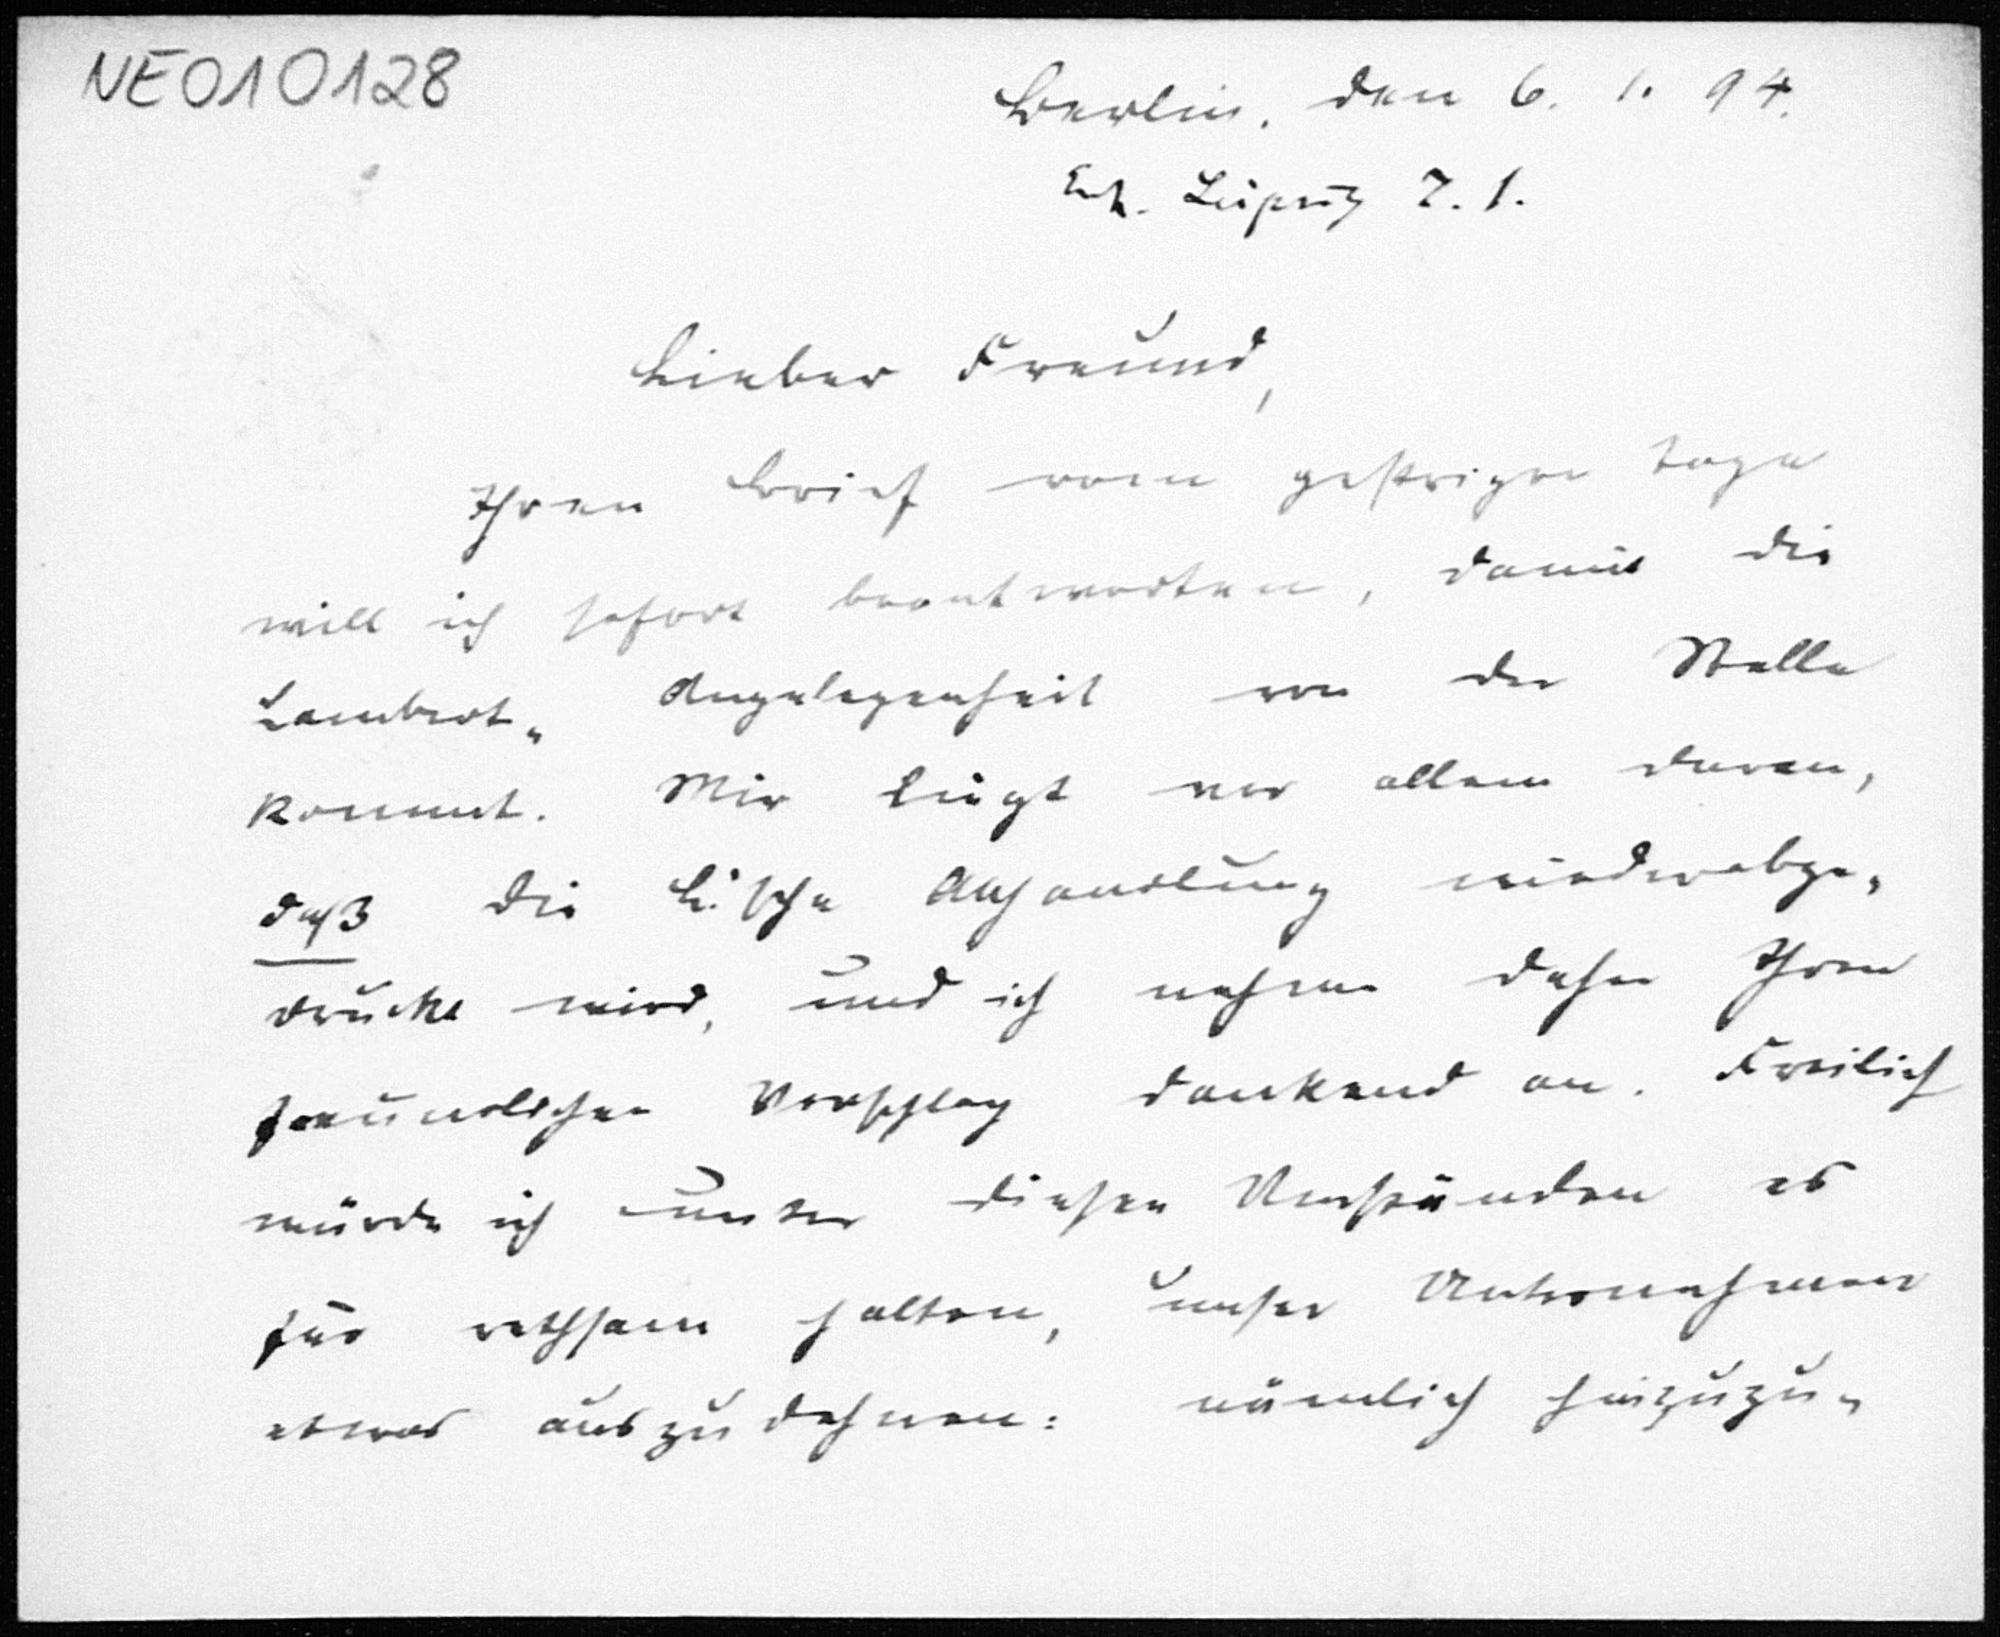 NE010128
Berlin, den 6. 1. 94.
Erh. Leipzig 7. 1.
Lieber Freund,
Ihren Brief vom gestrigen Tage
will ich sofort beantworten, damit die
Lambert-Angelegenheit von der Stelle
kommt. Mir liegt vor allem daran,
daß die L.'sche Abhandlung wiederabge-
druckt wird, und ich nehme daher Ihren
freundlichen Vorschlag dankend an. Freilich
würde ich unter diesen Umständen es
für rathsam halten, unser Unternehmen
etwas auszudehnen: nämlich hinzuzu-